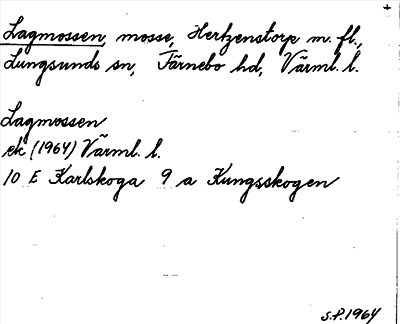 Lagmossen, mosse, Hertzenstorp m. fl.,
Lungsunds sn, Färnebo hd, Värml. l.
Lagmossen
ek (1964) Värml. l.
10 E Karlskoga 9 a Kungsskogen
S.P. 1964